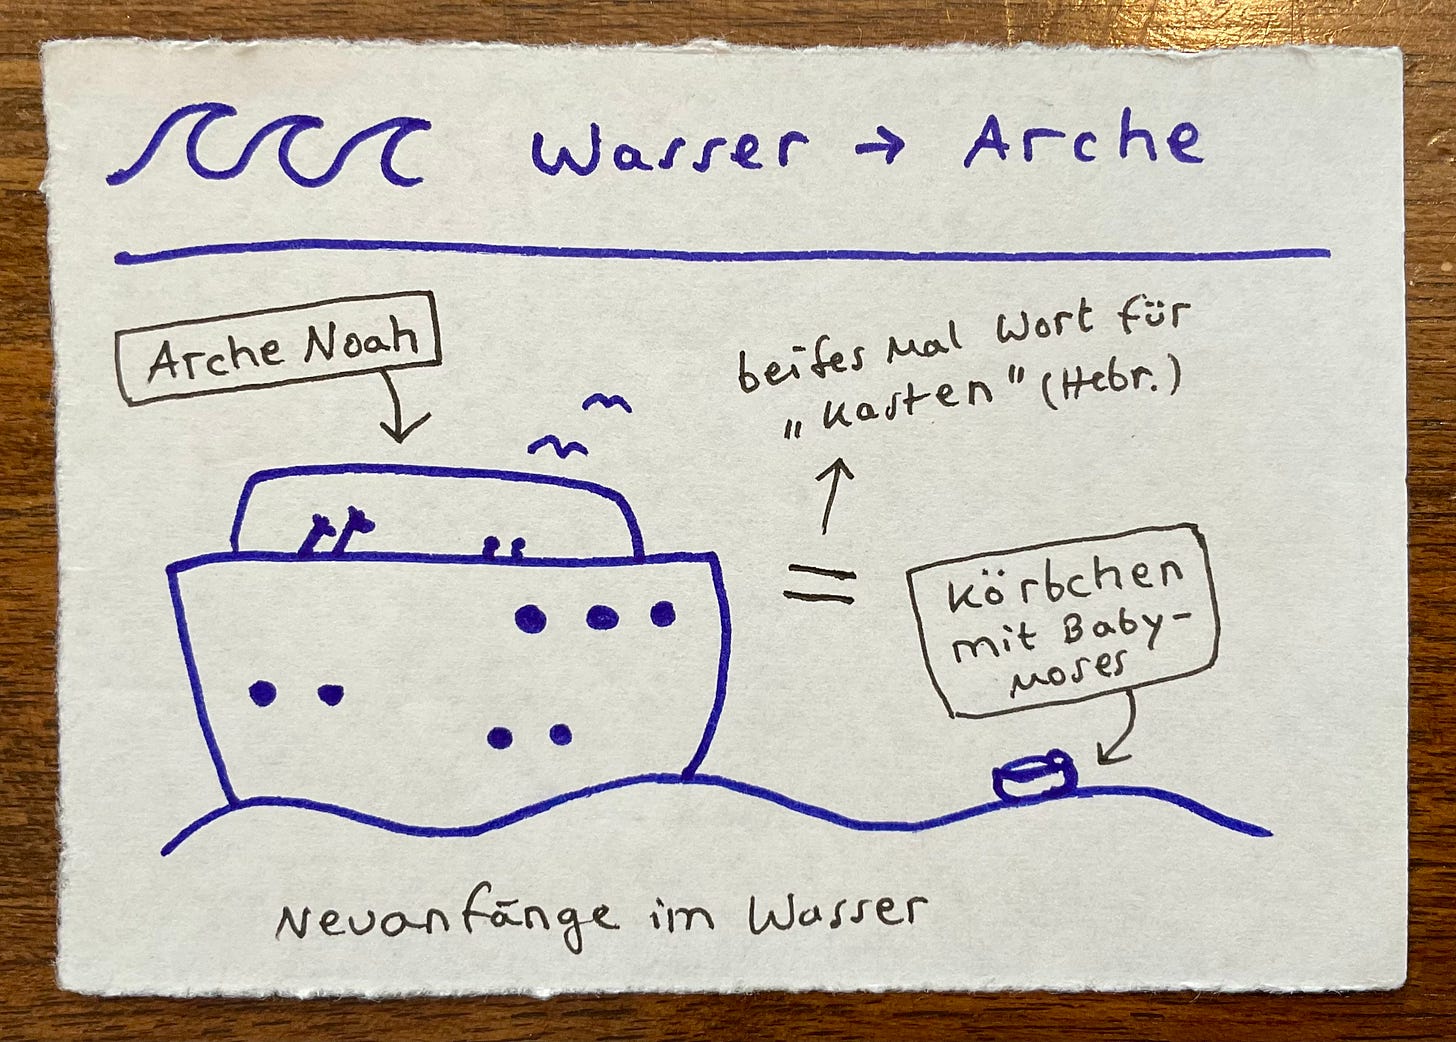 Wasser → Arche
Arche Noah
beides Mal Wort für
„Kasten" (Hebr.)
=
Körbchen
mit Baby-
Moses
Neuanfänge im Wasser